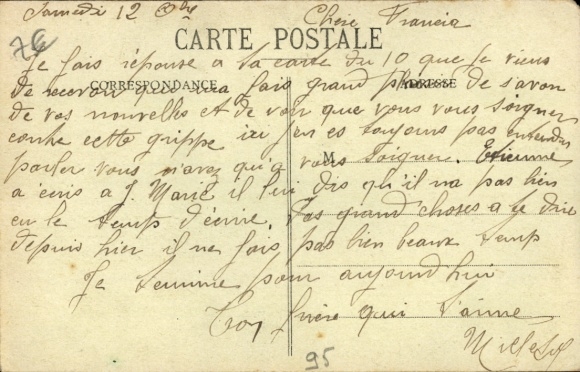 Samedi 12 8bre
Chère Francia
7€
CARTE POSTALE
Je fais réponse a ta carte du 10 que je viens
CORRESPONDANCE
ADRESSE
de recevoir qui m'a fais grand plaisir de s'avoir
de vos nouvelles et de voir que vous vous soigner
contre cette grippe ici j'en es toujours pas entendu
M
parler vous n'avez qu'a vous soigner. Etienne
a ecris a J. Marie il lui dis qu'il na pas bien
eu le temps d'écrire. Pas grand choses a te dire
depuis hier il ne fais pas bien beaux temps
Je termine pour aujourd hui
Ton frère qui t'aime
95